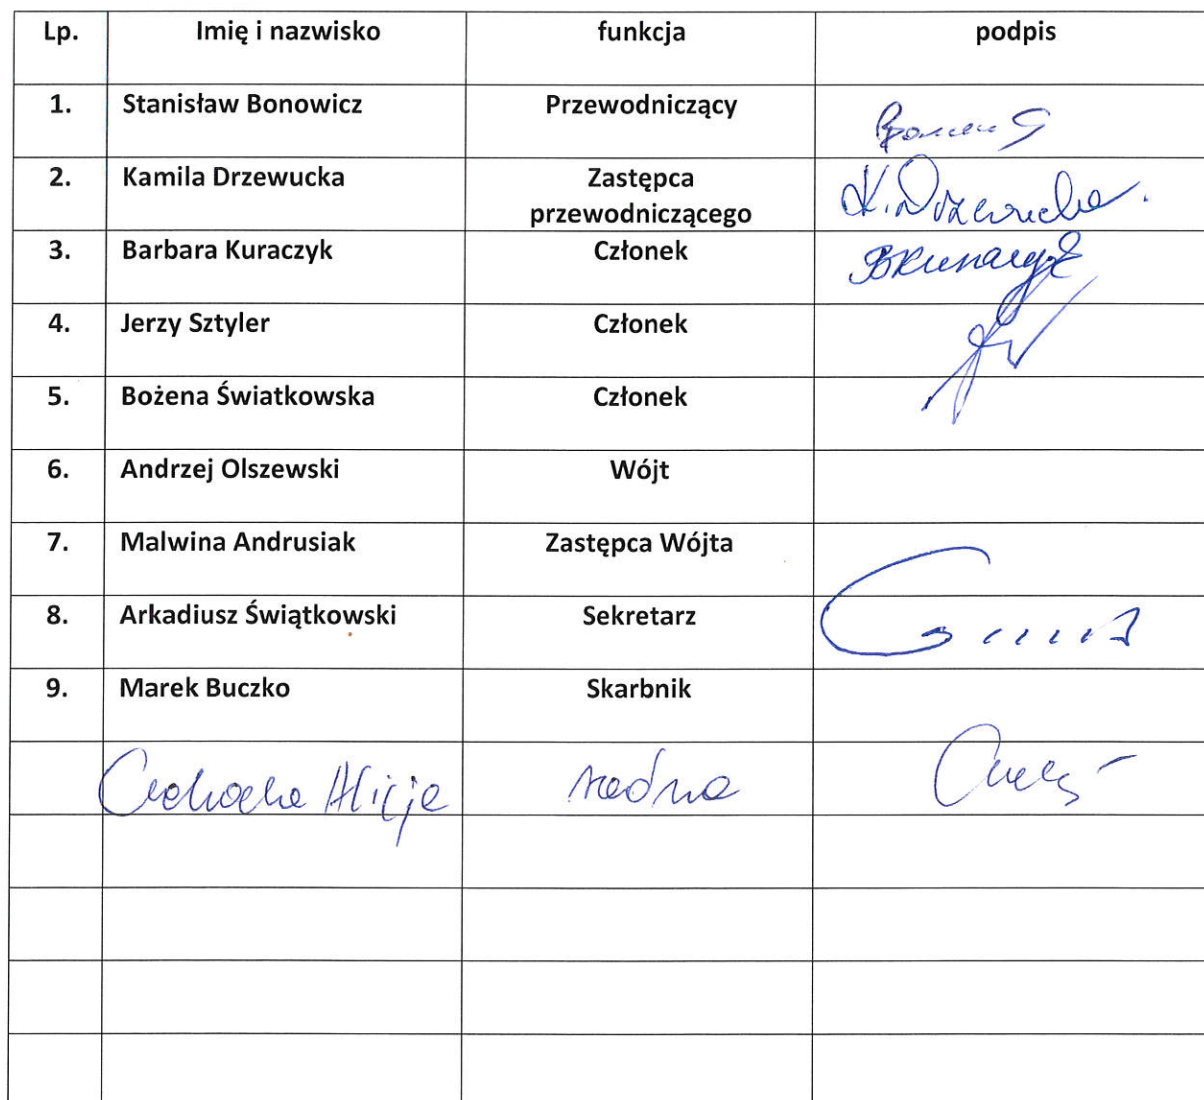 Lp. Imię i nazwisko funkcja podpis
1. Stanisław Bonowicz Przewodniczący
2. Kamila Drzewucka Zastępca
przewodniczącego K. Drzewucka
3. Barbara Kuraczyk Członek
4. Jerzy Sztyler Członek
5. Bożena Światkowska Członek
6. Andrzej Olszewski Wójt
7. Malwina Andrusiak Zastępca Wójta
8. Arkadiusz Świątkowski Sekretarz
9. Marek Buczko Skarbnik
Alicja radna